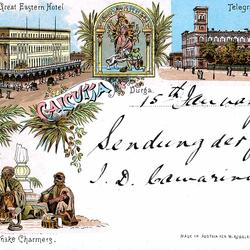 Great Eastern Hotel
Telegr
Durga.
CALCUTTA
15th January
Sendung der
J. D.
Snake Charmers.
MADE IN AUSTRIA